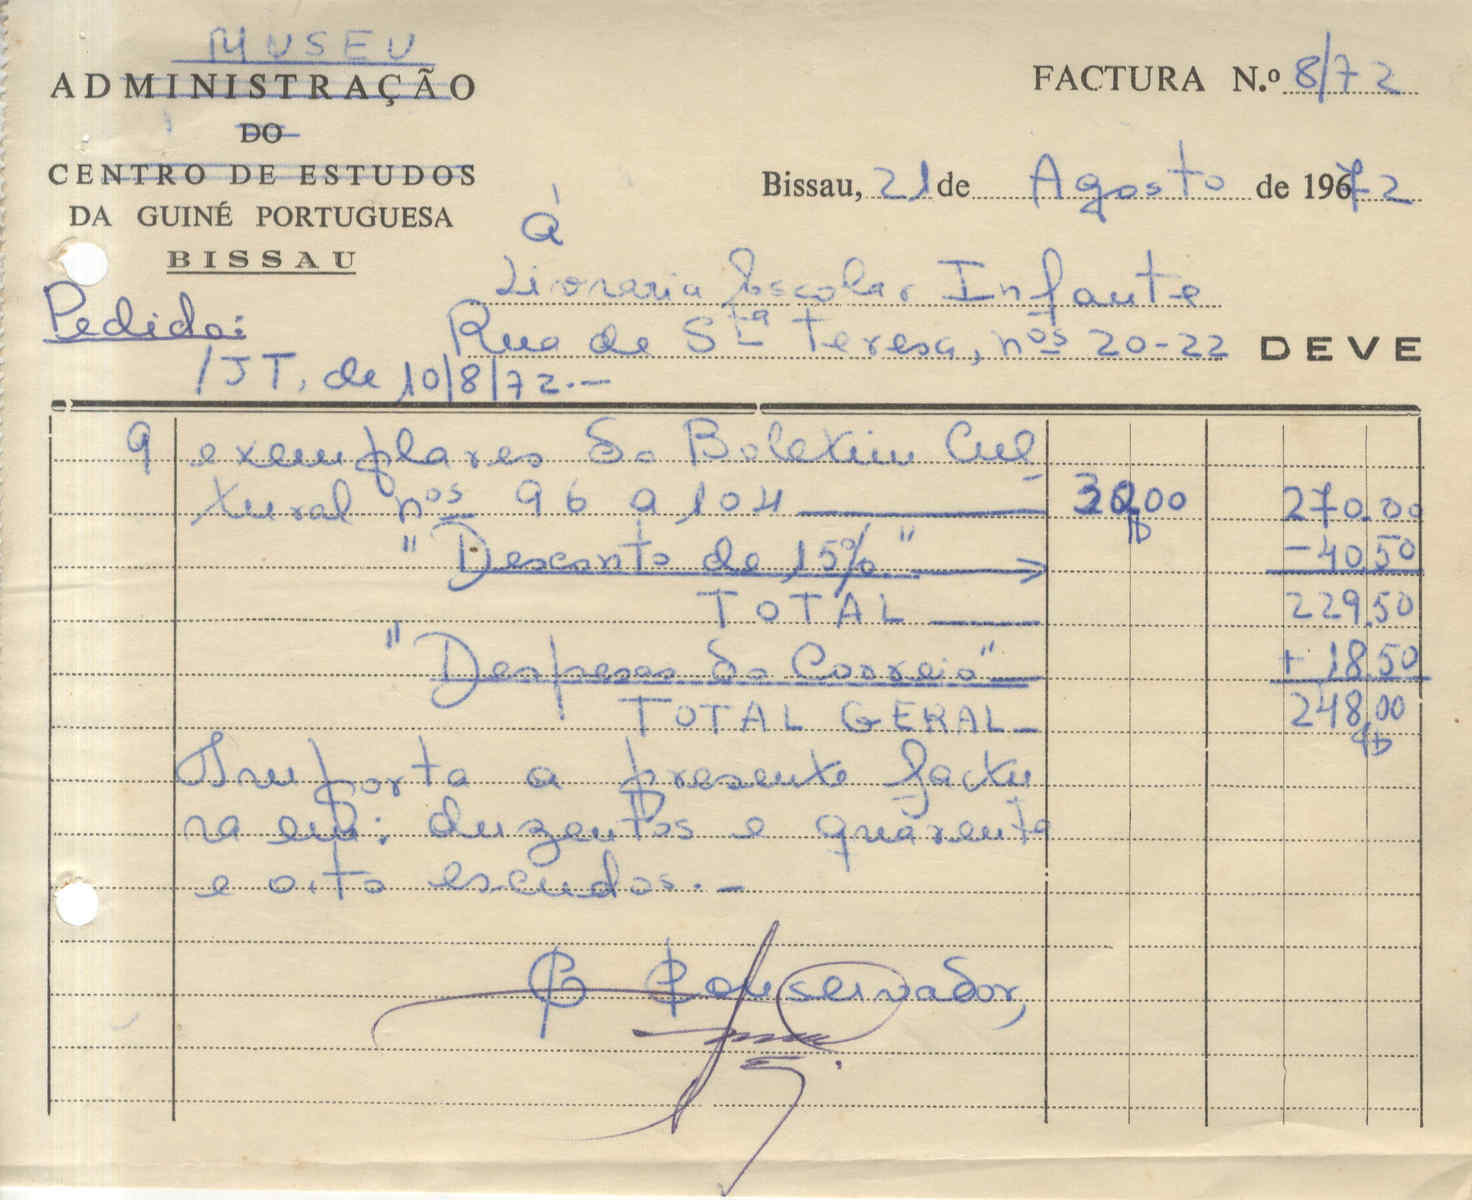 MUSEU
ADMINISTRAÇÃO
DO
CENTRO DE ESTUDOS
DA GUINÉ PORTUGUESA
BISSAU
FACTURA N.º 8/72
Bissau, 21 de Agosto de 1972
À
Livraria Escolar Infante
Rua de Stª Teresa, nºs 20-22 DEVE
Pedido:
/JT, de 10/8/72.-
9 exemplares do Boletim Cul
tural nºs 96 a 104 30,00 270,00
"Desconto de 15%" -40,50
TOTAL 229,50
"Despesas do Correio" +18,50
TOTAL GERAL 248,00
Importa a presente factu
ra em: duzentos e quarenta
e oito escudos.-
O Conservador,